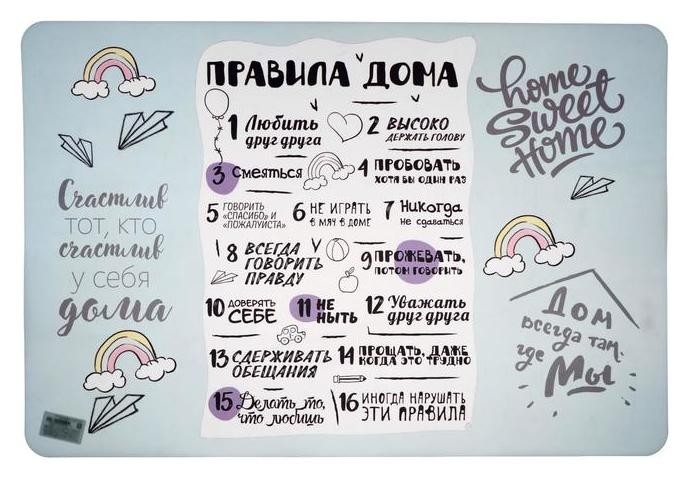 ПРАВИЛА ДОМА
1 Любить
друг друга
2 ВЫСОКО
ДЕРЖАТЬ ГОЛОВУ
3 Смеяться
4 ПРОБОВАТЬ
ХОТЯ БЫ ОДИН РАЗ
5 ГОВОРИТЬ
«СПАСИБО» И
«ПОЖАЛУЙСТА»
6 НЕ ИГРАТЬ
В МЯЧ В ДОМЕ
7 Никогда
не сдаваться
8 ВСЕГДА
ГОВОРИТЬ
ПРАВДУ
9 ПРОЖЕВАТЬ,
ПОТОМ ГОВОРИТЬ
10 ДОВЕРЯТЬ
СЕБЕ
11 НЕ
НЫТЬ
12 Уважать
друг друга
13 СДЕРЖИВАТЬ
ОБЕЩАНИЯ
14 ПРОЩАТЬ, ДАЖЕ
КОГДА ЭТО ТРУДНО
15 Делать то,
что любишь
16 ИНОГДА НАРУШАТЬ
ЭТИ ПРАВИЛА
Счастлив
тот, кто
счастлив
у себя
дома
home
Sweet
Home
Дом
всегда там,
где
Мы